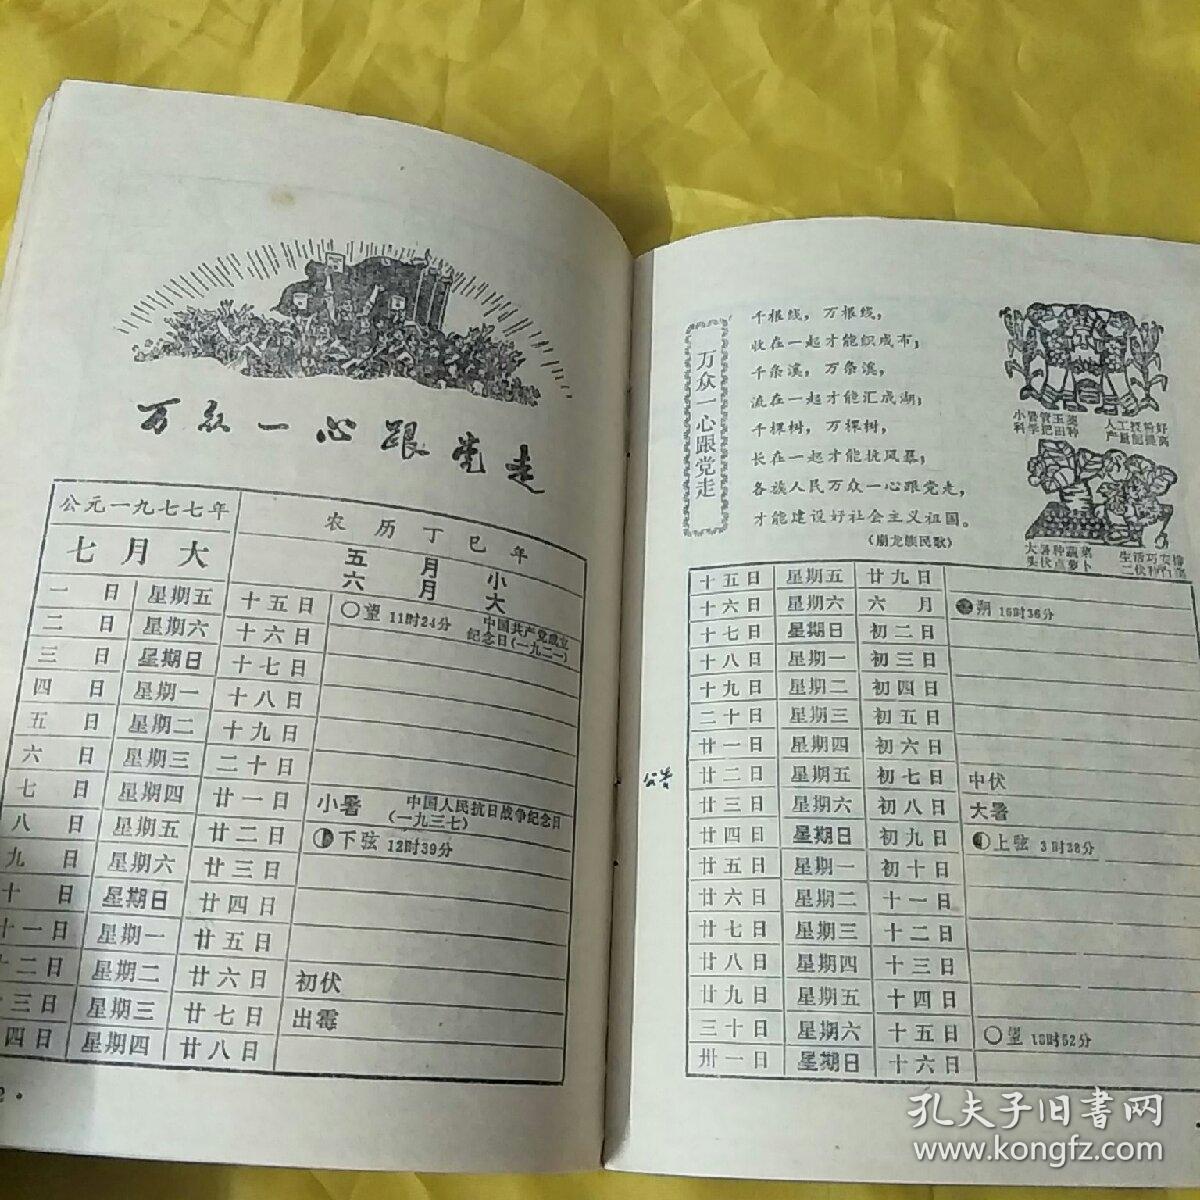 万众一心跟党走
公元一九七七年 农历丁巳年
七月大 五月小
六月大
一日 星期五 十五日 〇望 11时24分 中国共产党成立
纪念日(一九二一)
二日 星期六 十六日
三日 星期日 十七日
四日 星期一 十八日
五日 星期二 十九日
六日 星期三 二十日
七日 星期四 廿一日 小暑 中国人民抗日战争纪念日
(一九三七)
八日 星期五 廿二日 下弦 12时39分
九日 星期六 廿三日
十日 星期日 廿四日
十一日 星期一 廿五日
十二日 星期二 廿六日 初伏
三日 星期三 廿七日 出霉
四日 星期四 廿八日
2·
万众一心跟党走
千根线，万根线，
收在一起才能织成布；
千条溪，万条溪，
流在一起才能汇成湖；
千棵树，万棵树，
长在一起才能抗风暴；
各族人民万众一心跟党走，
才能建设好社会主义祖国。
小暑管玉米 人工授粉好
科学把田种 产量能提高
大暑种蔬菜
十五日 星期五 廿九日
十六日 星期六 六月 朔 16时36分
十七日 星期日 初二日
十八日 星期一 初三日
十九日 星期二 初四日
二十日 星期三 初五日
廿一日 星期四 初六日
公告
廿二日 星期五 初七日 中伏
廿三日 星期六 初八日 大暑
廿四日 星期日 初九日 上弦 3时38分
廿五日 星期一 初十日
廿六日 星期二 十一日
廿七日 星期三 十二日
廿八日 星期四 十三日
廿九日 星期五 十四日
三十日 星期六 十五日 〇望 18时52分
卅一日 星期日 十六日
孔夫子旧书网
www.kongfz.com